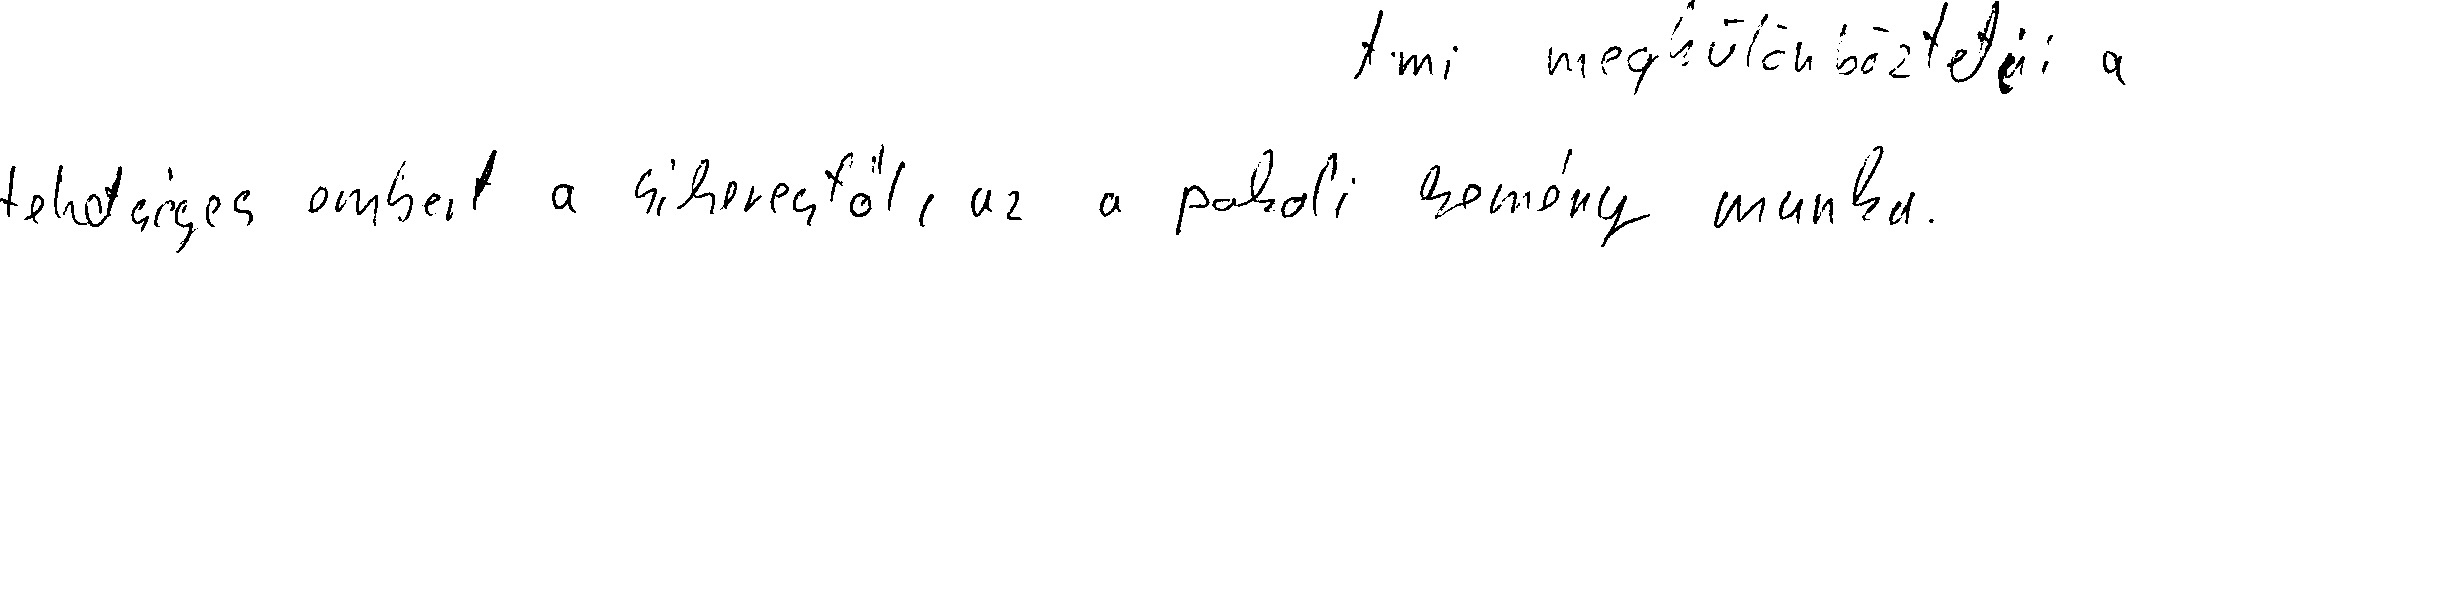 Ami megkülönbözteti a
tehetséges embert a sikerestől, az a pokoli kemény munka.